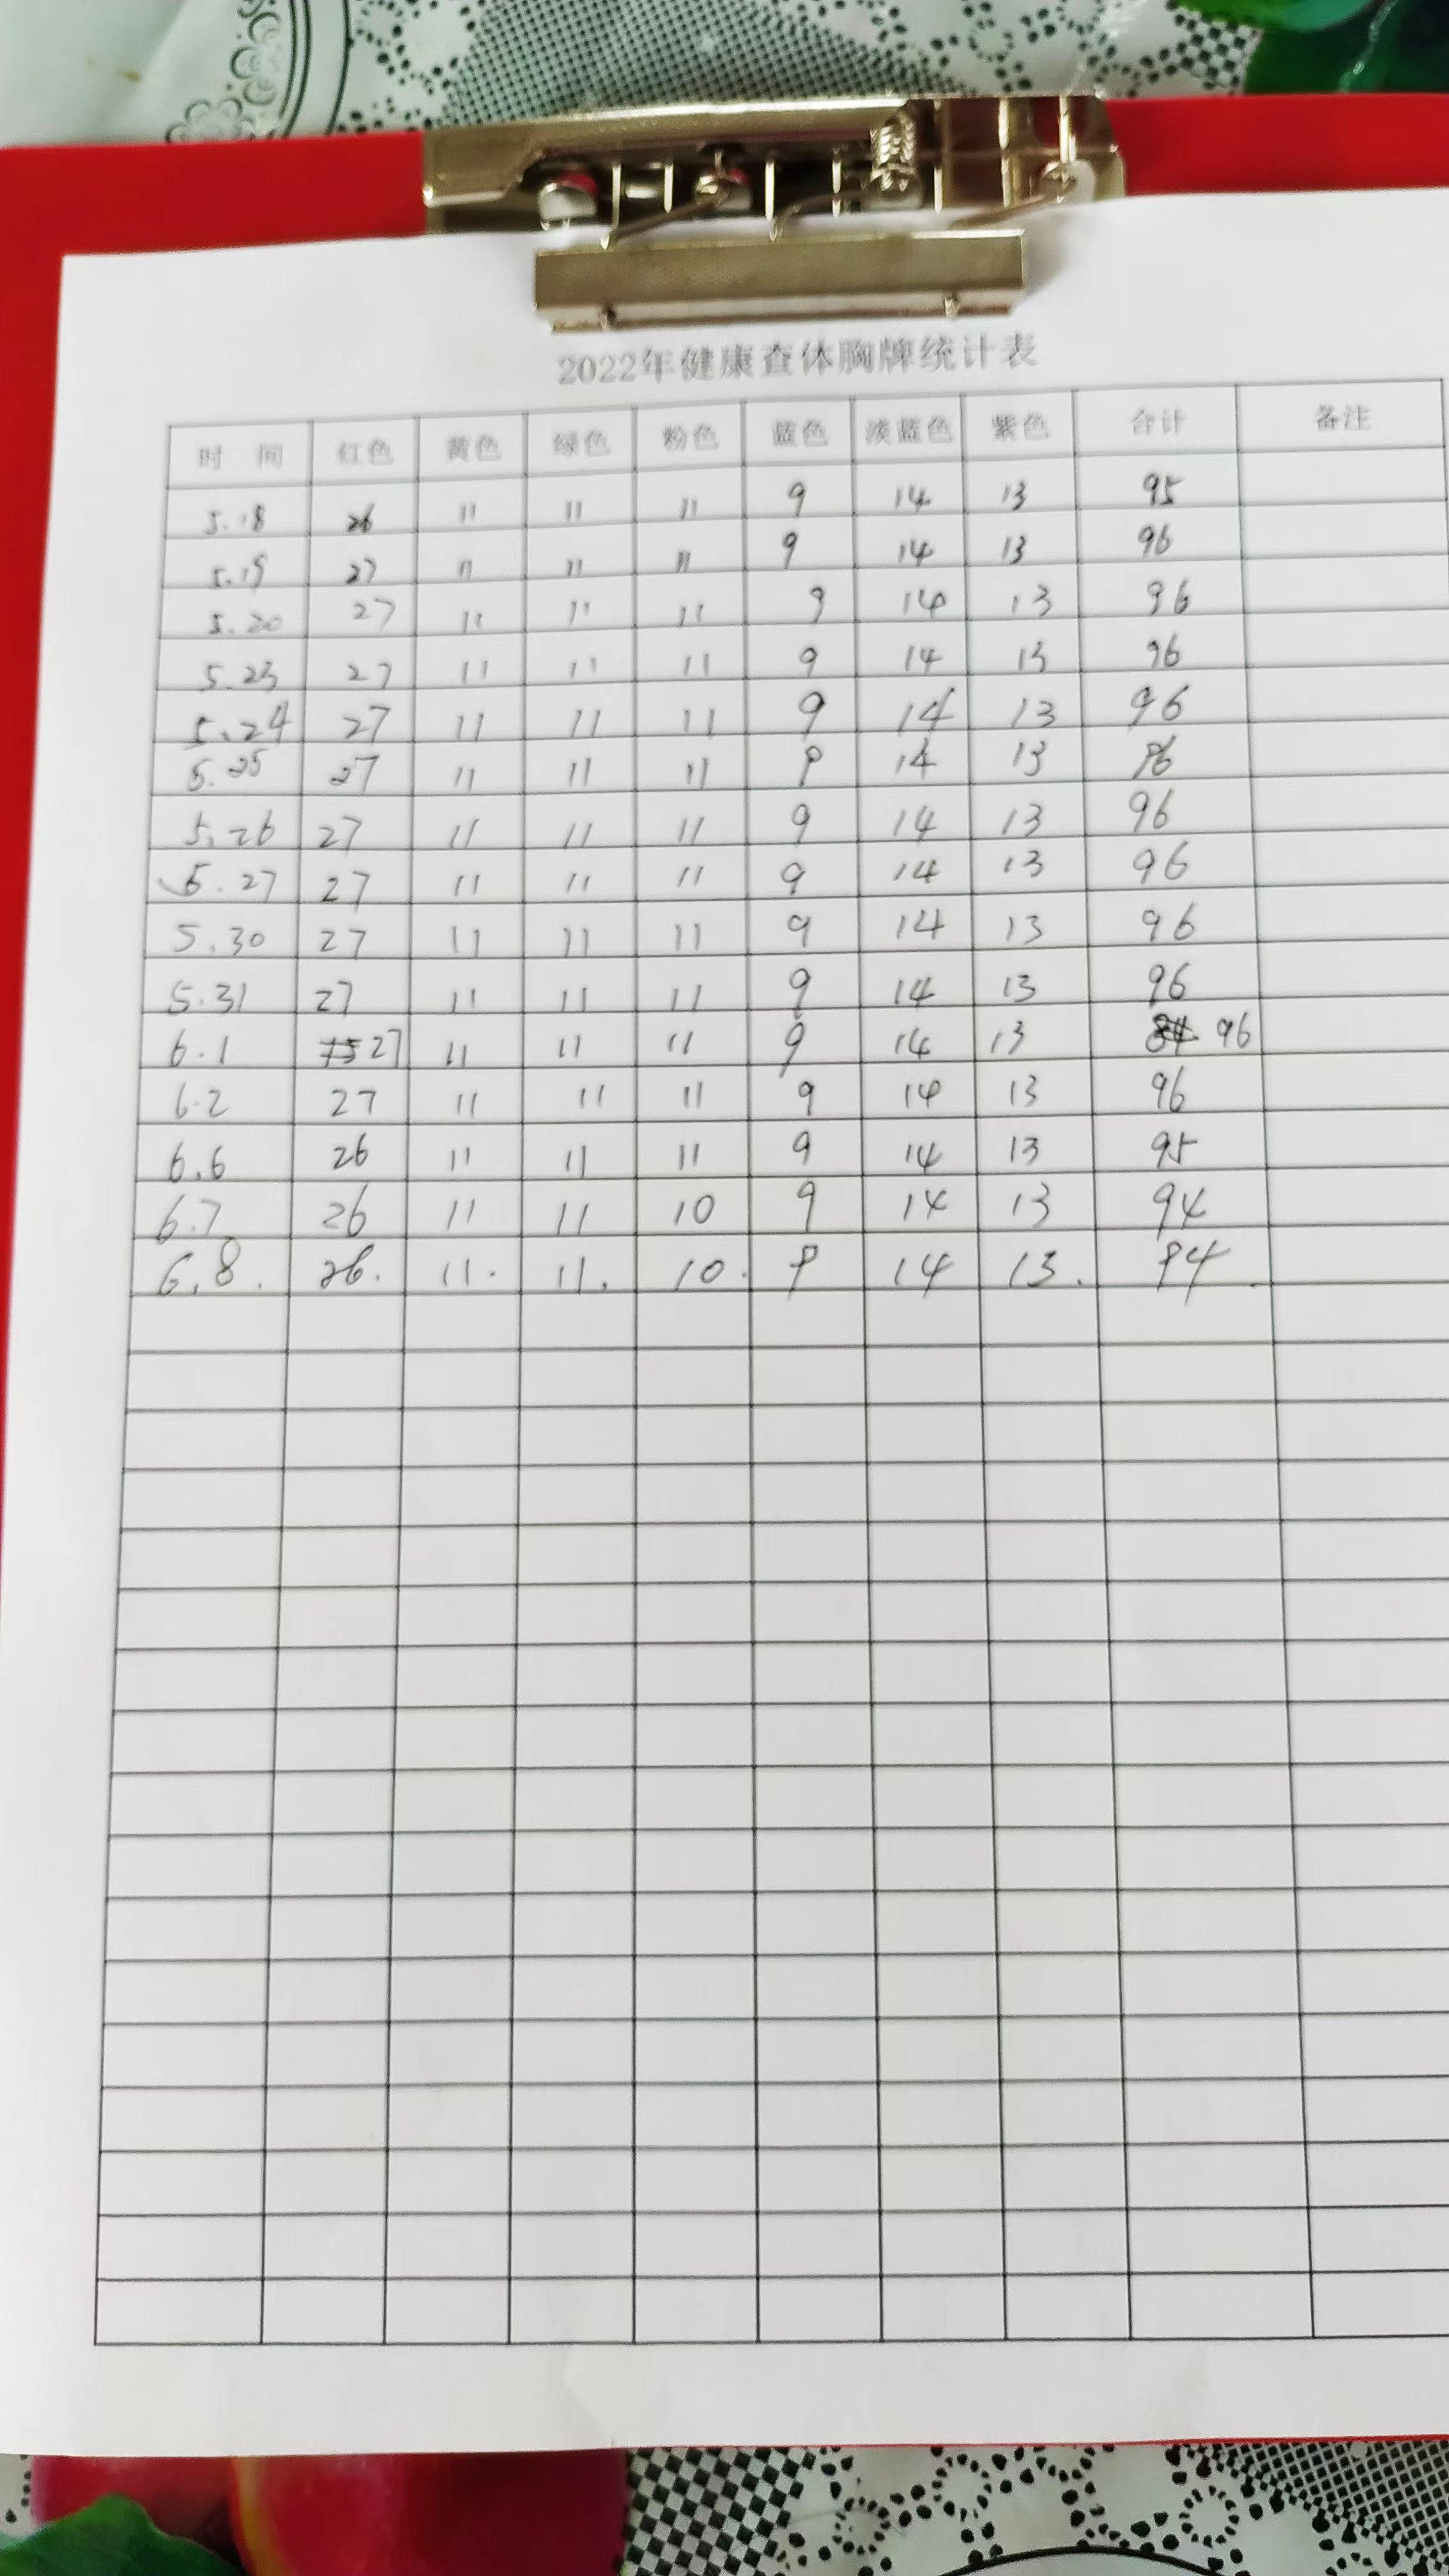 2022年健康查体胸牌统计表
时 间 红色 黄色 绿色 粉色 蓝色 淡蓝色 紫色 合计 备注
5.18 26 11 11 11 9 14 13 95
5.19 27 11 11 11 9 14 13 96
5.20 27 11 11 11 9 14 13 96
5.23 27 11 11 11 9 14 13 96
5.24 27 11 11 11 9 14 13 96
5.25 27 11 11 11 9 14 13 96
5.26 27 11 11 11 9 14 13 96
5.27 27 11 11 11 9 14 13 96
5.30 27 11 11 11 9 14 13 96
5.31 27 11 11 11 9 14 13 96
6.1 27 11 11 11 9 14 13 96
6.2 27 11 11 11 9 14 13 96
6.6 26 11 11 11 9 14 13 95
6.7 26 11 11 10 9 14 13 94
6.8. 26. 11. 11. 10. 9 14 13. 94.